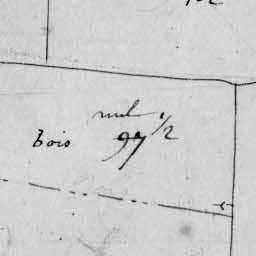 nul
bois 97 1/2